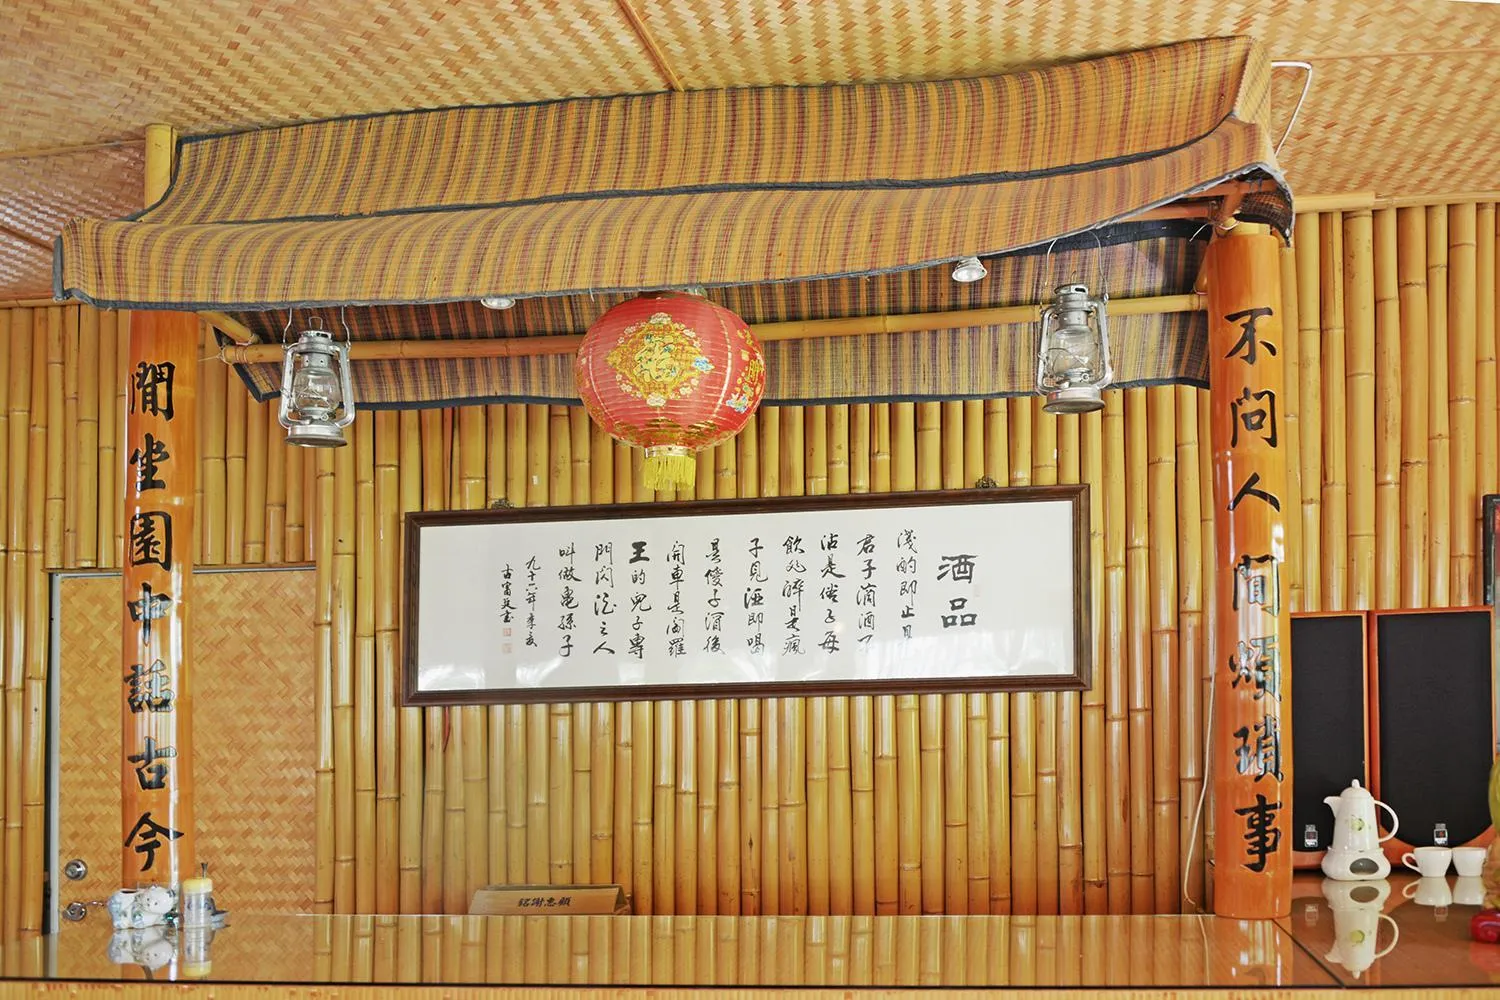 不問人間煩瑣事
酒品
淺酌即止是
君子滴酒不
沾是俗子每
飲必醉是瘋
子見酒即喝
是傻子酒後
開車是閻羅
王的兒子專
門鬧酒之人
叫做龜孫子
九十六年季夏
閒坐園中話古今
銘謝惠顧